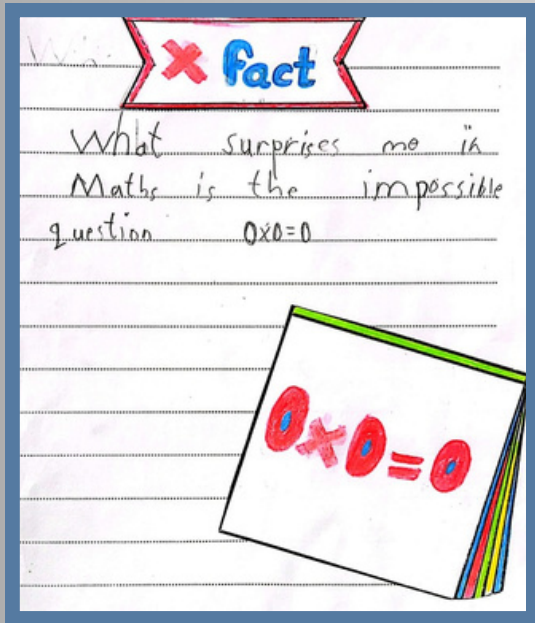 × fact
What surprises me in
Maths is the impossible
question 0×0=0
0×0=0